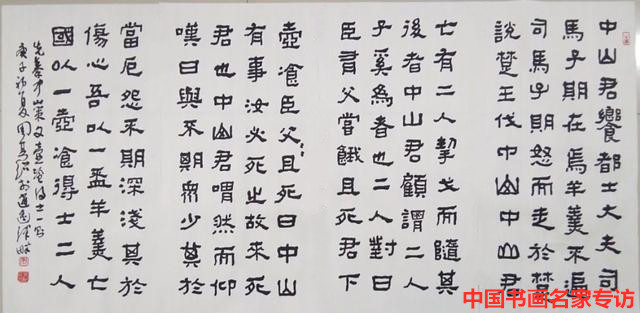 中山君饗都士大夫司
馬子期在焉羊羹不遍
司馬子期怒而走於楚
說楚王伐中山中山君
亡有二人挈戈而隨其
後者中山君顧謂二人
子奚為者也二人對曰
臣有父嘗餓且死君下
壺飡臣父且死曰中山
有事汝必死之故來死
君也中山君喟然而仰
嘆曰與不期眾少其於
當厄怨不期深淺其於
傷心吾以一盃羊羹亡
國以一壺飡得士二人
先秦
庚子初夏
中国书画名家专访